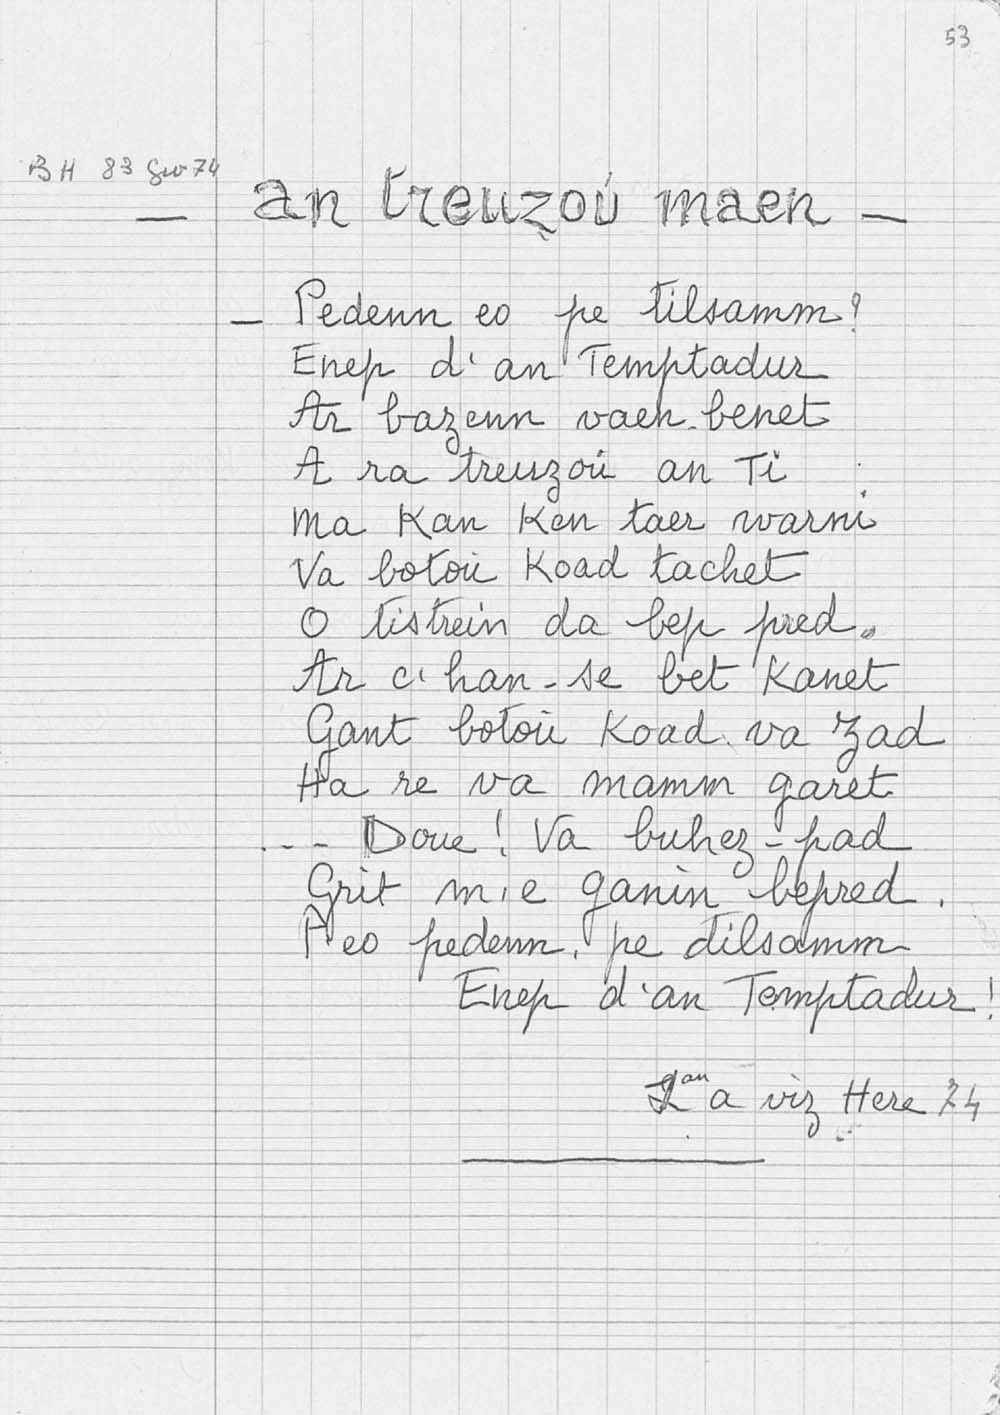 53
BH 83 Gw 74
— an treuzoù maen —
— Pedenn eo pe tilsamm?
Enep d'an Temptadur
Ar bazenn vaen-benet
A ra treuzoù an Ti
Ma Kan Ken taer warni
Va botoù Koad tachet
O tistreiñ da bep pred.
Ar c'han-se bet Kanet
Gant botoù Koad va Zad
Ha re va mamm garet
... Doue! Va buhez-pad
Grit m'e ganin bepred.
P'eo pedenn, pe dilsamm
Enep d'an Temptadur!
2an a viz Here 74